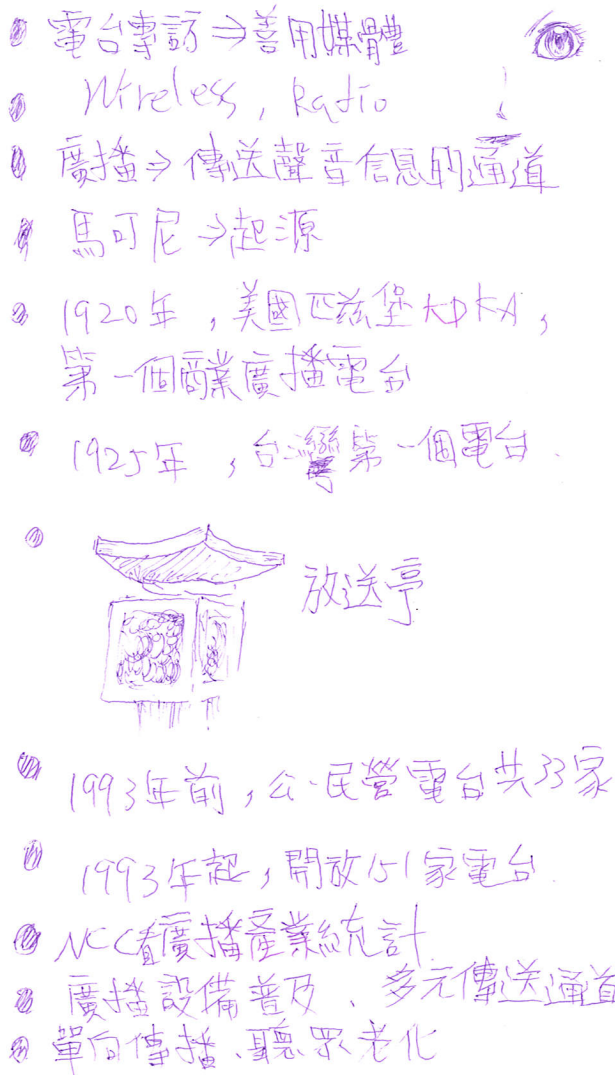 電台專訪⇒善用媒體
Wireless, Radio
廣播⇒傳送聲音信息的通道
馬可尼⇒起源
1920年，美國匹茲堡KDKA，
第一個商業廣播電台
1925年，台灣第一個電台.
放送亭
1993年前，公、民營電台共33家
1993年起，開放151家電台.
NCC看廣播產業統計
廣播設備普及、多元傳送通道
單向傳播、聽眾老化